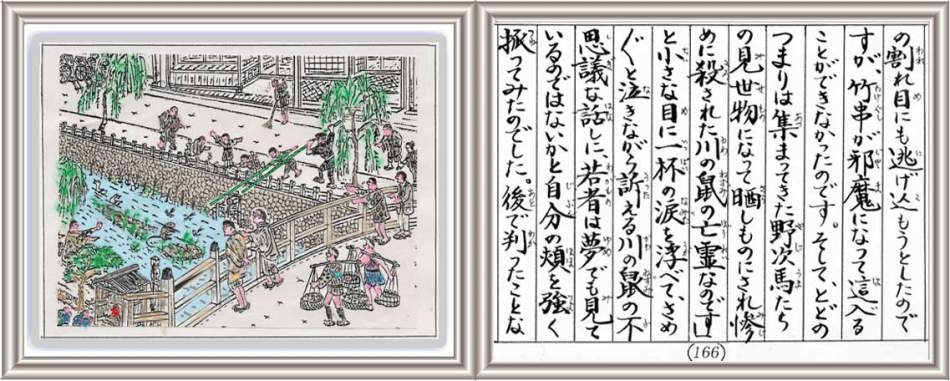 の割れ目にも逃げ込もうとしたので
すが、竹串が邪魔になって這入る
ことができなかったのです。そして、とどの
つまりは集まってきた野次馬たち
の見世物になって晒しものにされ惨
めに殺された川の鼠の亡霊なのです」
と小さな目に一杯の涙を浮べて、さめ
〲と泣きながら訴える川の鼠の不
思議な話しに若者は夢でも見て
いるのではないかと自分の頬を強く
抓ってみたのでした。後で判ったことな
(166)